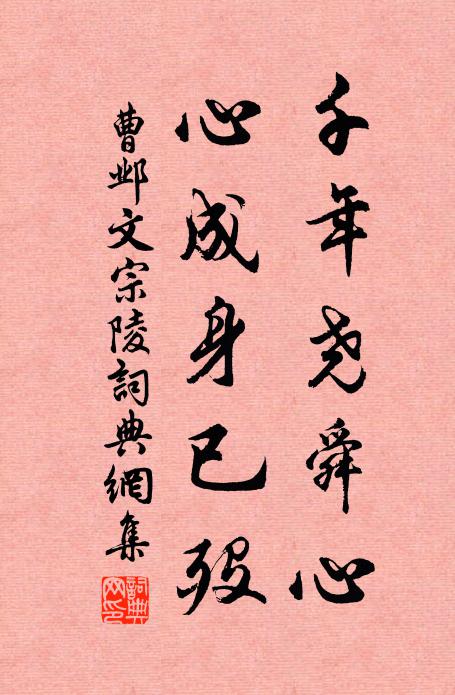 千年尧舜心
心成身已殁
曹邺文宗陵詞典網集
詞典網印